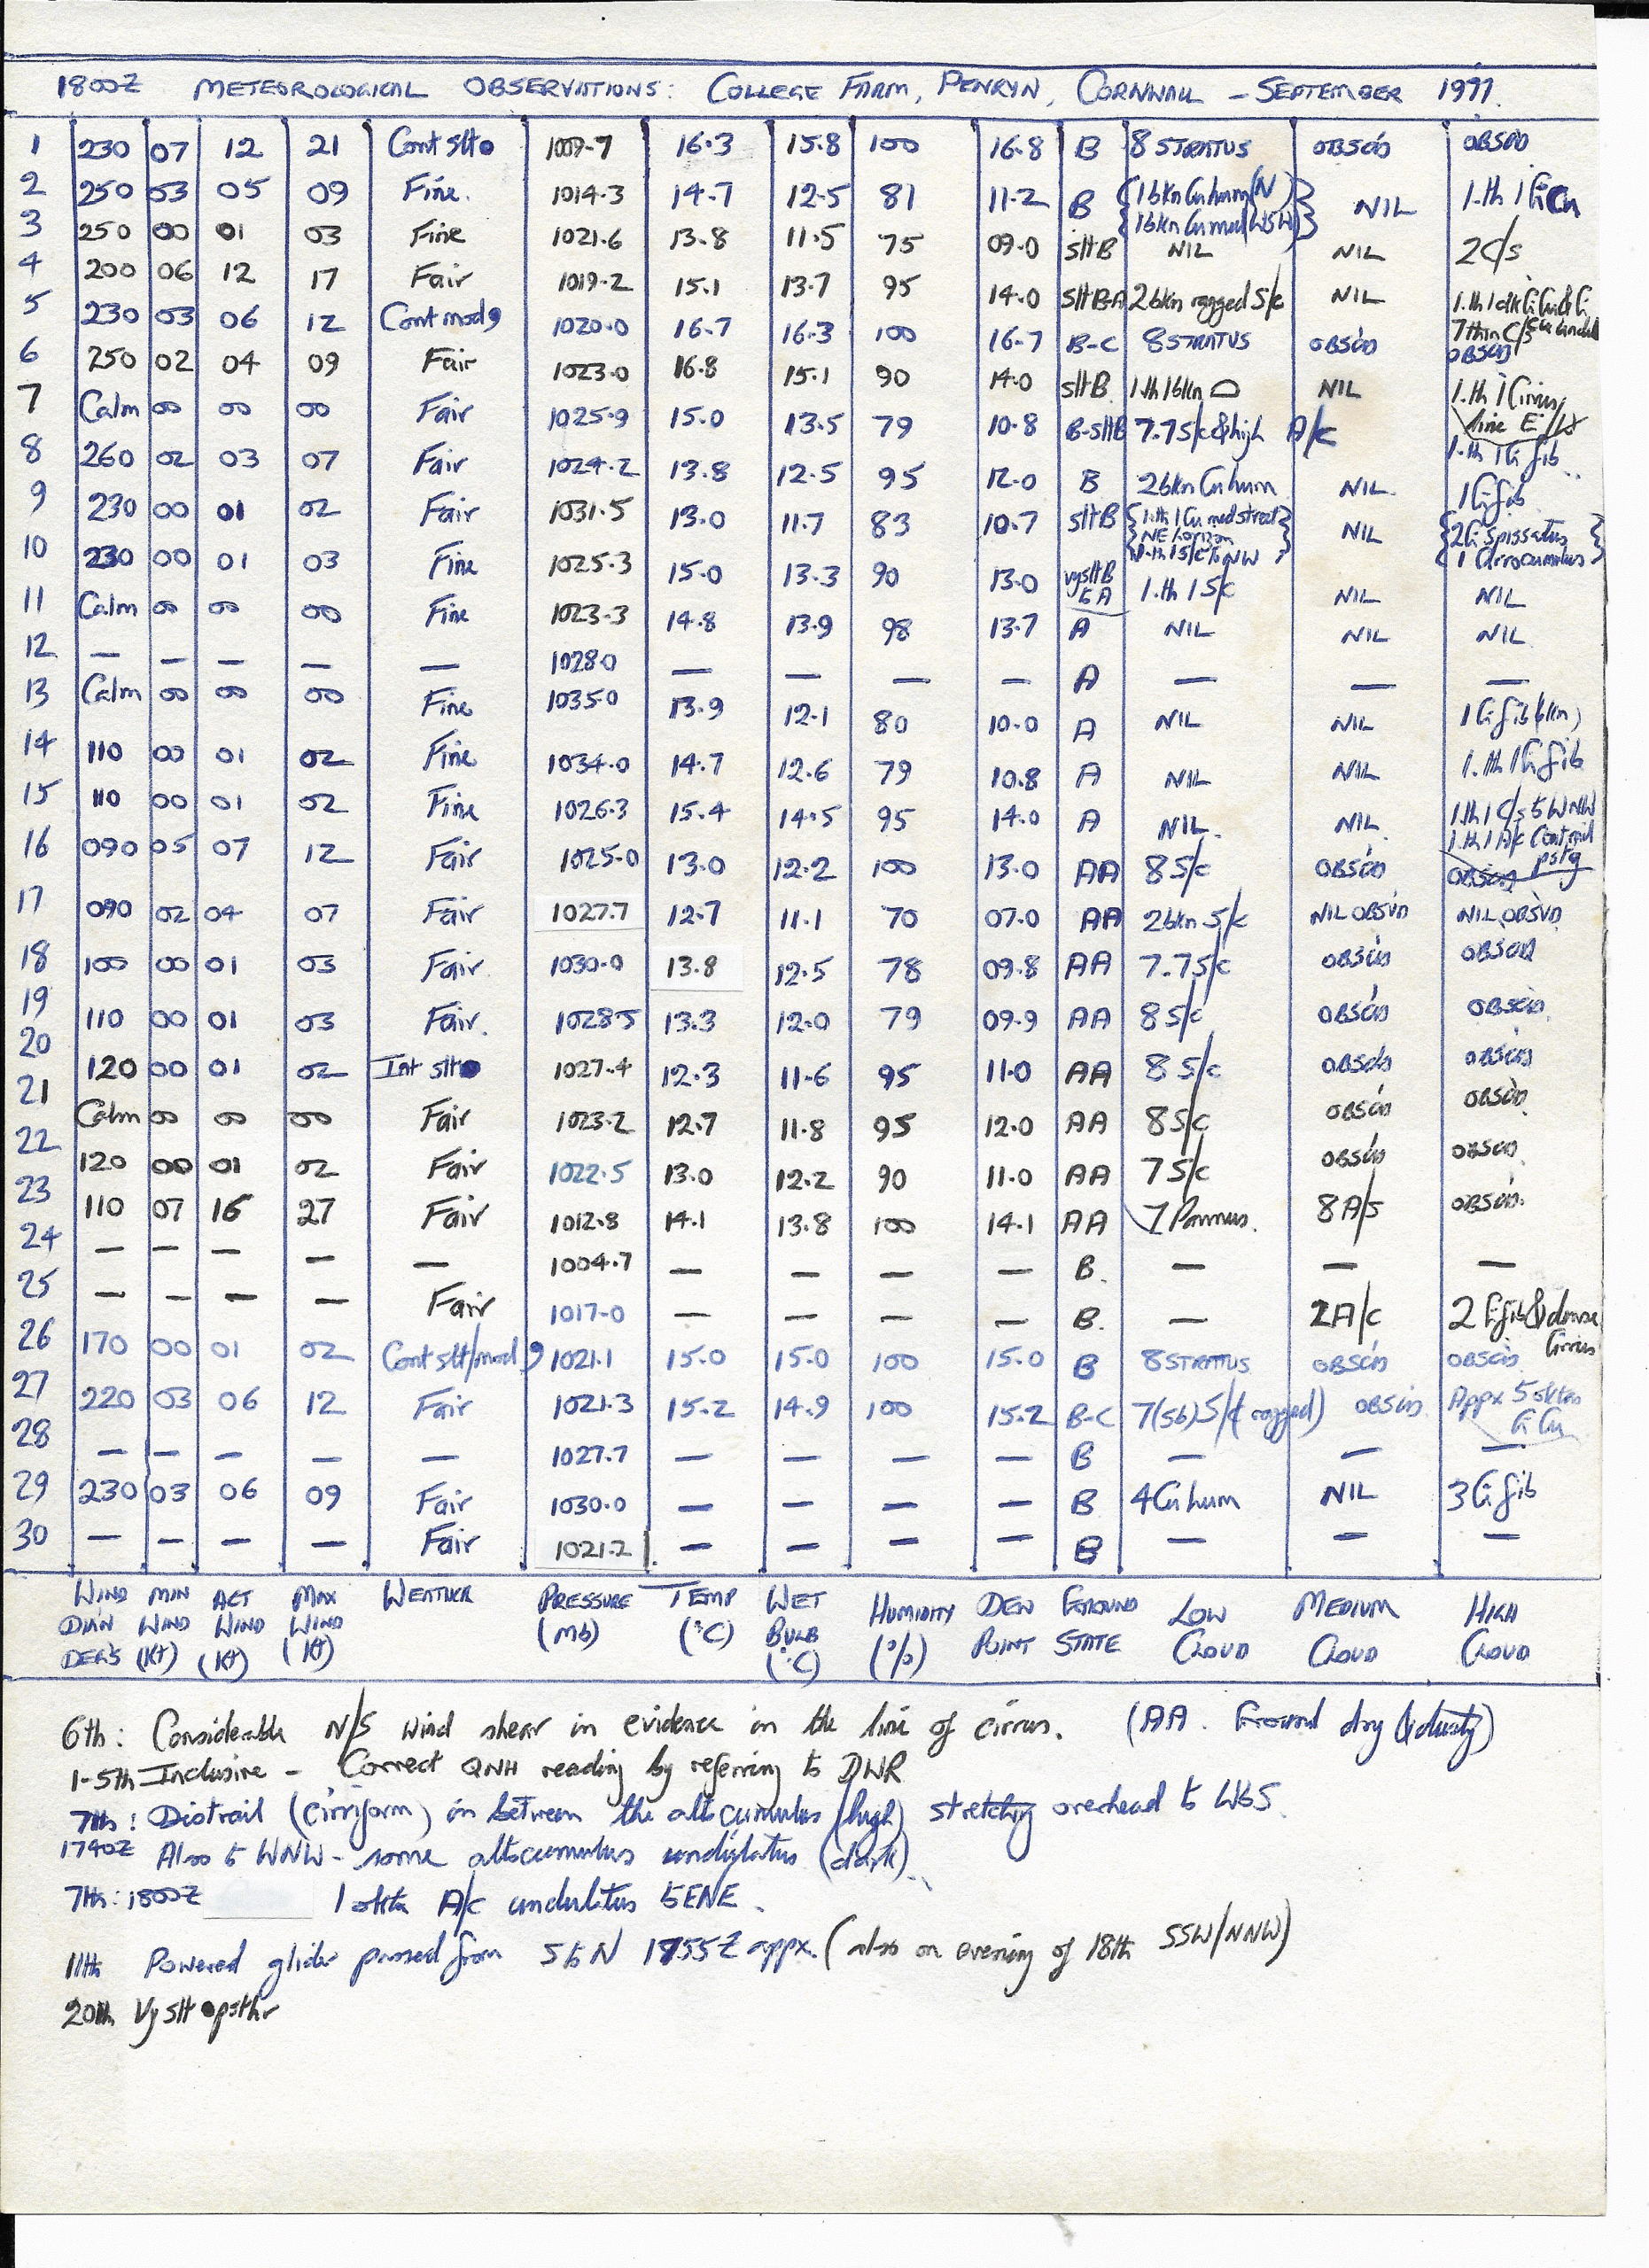 1800Z METEOROLOGICAL OBSERVATIONS: COLLEGE FARM, PENRYN, CORNWALL - SEPTEMBER 1991.
1 230 07 12 21 Cont slt● 1009.7 16.3 15.8 100 16.8 B 8 STRATUS OBSCD OBSCD
2 250 03 05 09 Fine. 1014.3 14.7 12.5 81 11.2 B {1bkn Cu hum (N) 1bkn Cu med (WSW)} NIL 1.th 1 CiCu
3 250 00 01 03 Fine 1021.6 13.8 11.5 75 09.0 slt B NIL NIL 2 C/s
4 200 06 12 17 Fair 1019.2 15.1 13.7 95 14.0 slt B-A 2bkn ragged S/c NIL 7 thin C/s
5 230 03 06 12 Cont mod 1020.0 16.7 16.3 100 16.7 B-C 8 STRATUS OBSCD OBSCD
6 250 02 04 09 Fair 1023.0 16.8 15.1 90 14.0 slt B 1.th 1bkn NIL 1.th 1 Cirrus, line E/W
7 Calm 00 00 00 Fair 1025.9 15.0 13.5 79 10.8 B-slt B 7.7 S/c & high A/c 1.th 1 Ci fib.
8 260 02 03 07 Fair 1024.2 13.8 12.5 95 12.0 B 2bkn Cu hum NIL. 1 Ci fib
9 230 00 01 02 Fair 1031.5 13.0 11.7 83 10.7 slt B {1.th 1 Cu med street NE horizon 1.th 1 S/c to NW} NIL {2 Ci spissatus 1 Cirrocumulus}
10 230 00 01 03 Fine 1025.3 15.0 13.3 90 13.0 vy slt B to A 1.th 1 S/c NIL NIL
11 Calm 00 00 00 Fine 1023.3 14.8 13.9 98 13.7 A NIL NIL NIL
12 — — — — — 1028.0 — — — — A — — —
13 Calm 00 00 00 Fine 1035.0 13.9 12.1 80 10.0 A NIL NIL 1 Ci fib (bkn)
14 110 00 01 02 Fine 1034.0 14.7 12.6 79 10.8 A NIL NIL 1.th 1 Ci fib
15 110 00 01 02 Fine 1026.3 15.4 14.5 95 14.0 A NIL. NIL. 1.th 1 C/s to WNW 1.th 1 A/c Contrail pstg
16 090 05 07 12 Fair 1025.0 13.0 12.2 100 13.0 AA 8 S/c OBSCD OBSCD
17 090 02 04 07 Fair 1027.7 12.7 11.1 70 07.0 AA 2bkn S/c NIL OBSVD NIL OBSVD
18 100 00 01 03 Fair. 1030.0 13.8 12.5 78 09.8 AA 7.7 S/c OBSCD OBSCD
19 110 00 01 03 Fair. 1028.5 13.3 12.0 79 09.9 AA 8 S/c OBSCD OBSCD
20 120 00 01 02 Int slt● 1027.4 12.3 11.6 95 11.0 AA 8 S/c OBSCD OBSCD
21 Calm 00 00 00 Fair 1023.2 12.7 11.8 95 12.0 AA 8 S/c OBSCD OBSCD
22 120 00 01 02 Fair 1022.5 13.0 12.2 90 11.0 AA 7 S/c OBSCD OBSCD
23 110 07 16 27 Fair 1012.8 14.1 13.8 100 14.1 AA 7 Pannus. 8 A/s OBSCD.
24 — — — — — 1004.7 — — — — B. — — —
25 — — — — Fair 1017.0 — — — — B. — 2 A/c 2 Ci fib & dense Cirrus
26 170 00 01 02 Cont slt/mod 1021.1 15.0 15.0 100 15.0 B 8 STRATUS OBSCD OBSCD
27 220 03 06 12 Fair 1021.3 15.2 14.9 100 15.2 B-C 7(5b) S/c (ragged) OBSCD Appx 5 oktas CiCu
28 — — — — — 1027.7 — — — — B — — —
29 230 03 06 09 Fair 1030.0 — — — — B 4 Cu hum NIL 3 Ci fib
30 — — — — Fair 1021.2 — — — — B — — —
WIND DIR'N DEG'S MIN WIND (Kt) ACT WIND (Kt) MAX WIND (Kt) WEATHER PRESSURE (Mb) TEMP (°C) WET BULB (°C) HUMIDITY (%) DEW POINT GROUND STATE LOW CLOUD MEDIUM CLOUD HIGH CLOUD
6th: Considerable N/S wind shear in evidence in the line of cirrus. (AA. Ground dry & dusty)
1-5th Inclusive - Correct QNH reading by referring to DWR
7th: Distrail (cirriform) in between the altocumulus (high) stretching overhead to W&S.
1740Z Also to WNW - some altocumulus undulatus (dark).
7th: 1800Z 1 okta A/c undulatus to ENE.
11th Powered glider passed from S to N 1755Z appx. (also on evening of 18th SSW/NNW)
20th Vy slt ● psthr